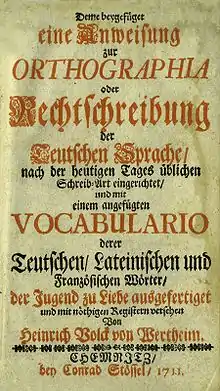 Deme beygefüget
eine Anweisung
zur
ORTHOGRAPHIA
oder
Rechtschreibung
der
Teutschen Sprache/
nach der heutigen Tages üblichen
Schreib-Art eingerichtet/
und mit
einem angefügten
VOCABULARIO
derer
Teutschen/ Lateinischen und
Französischen Wörter/
der Jugend zu Liebe ausgefertiget
und mit nöthigen Registern versehen
Von
Heinrich Volck von Wertheim.
CHEMNITZ/
bey Conrad Stössel/ 1711.